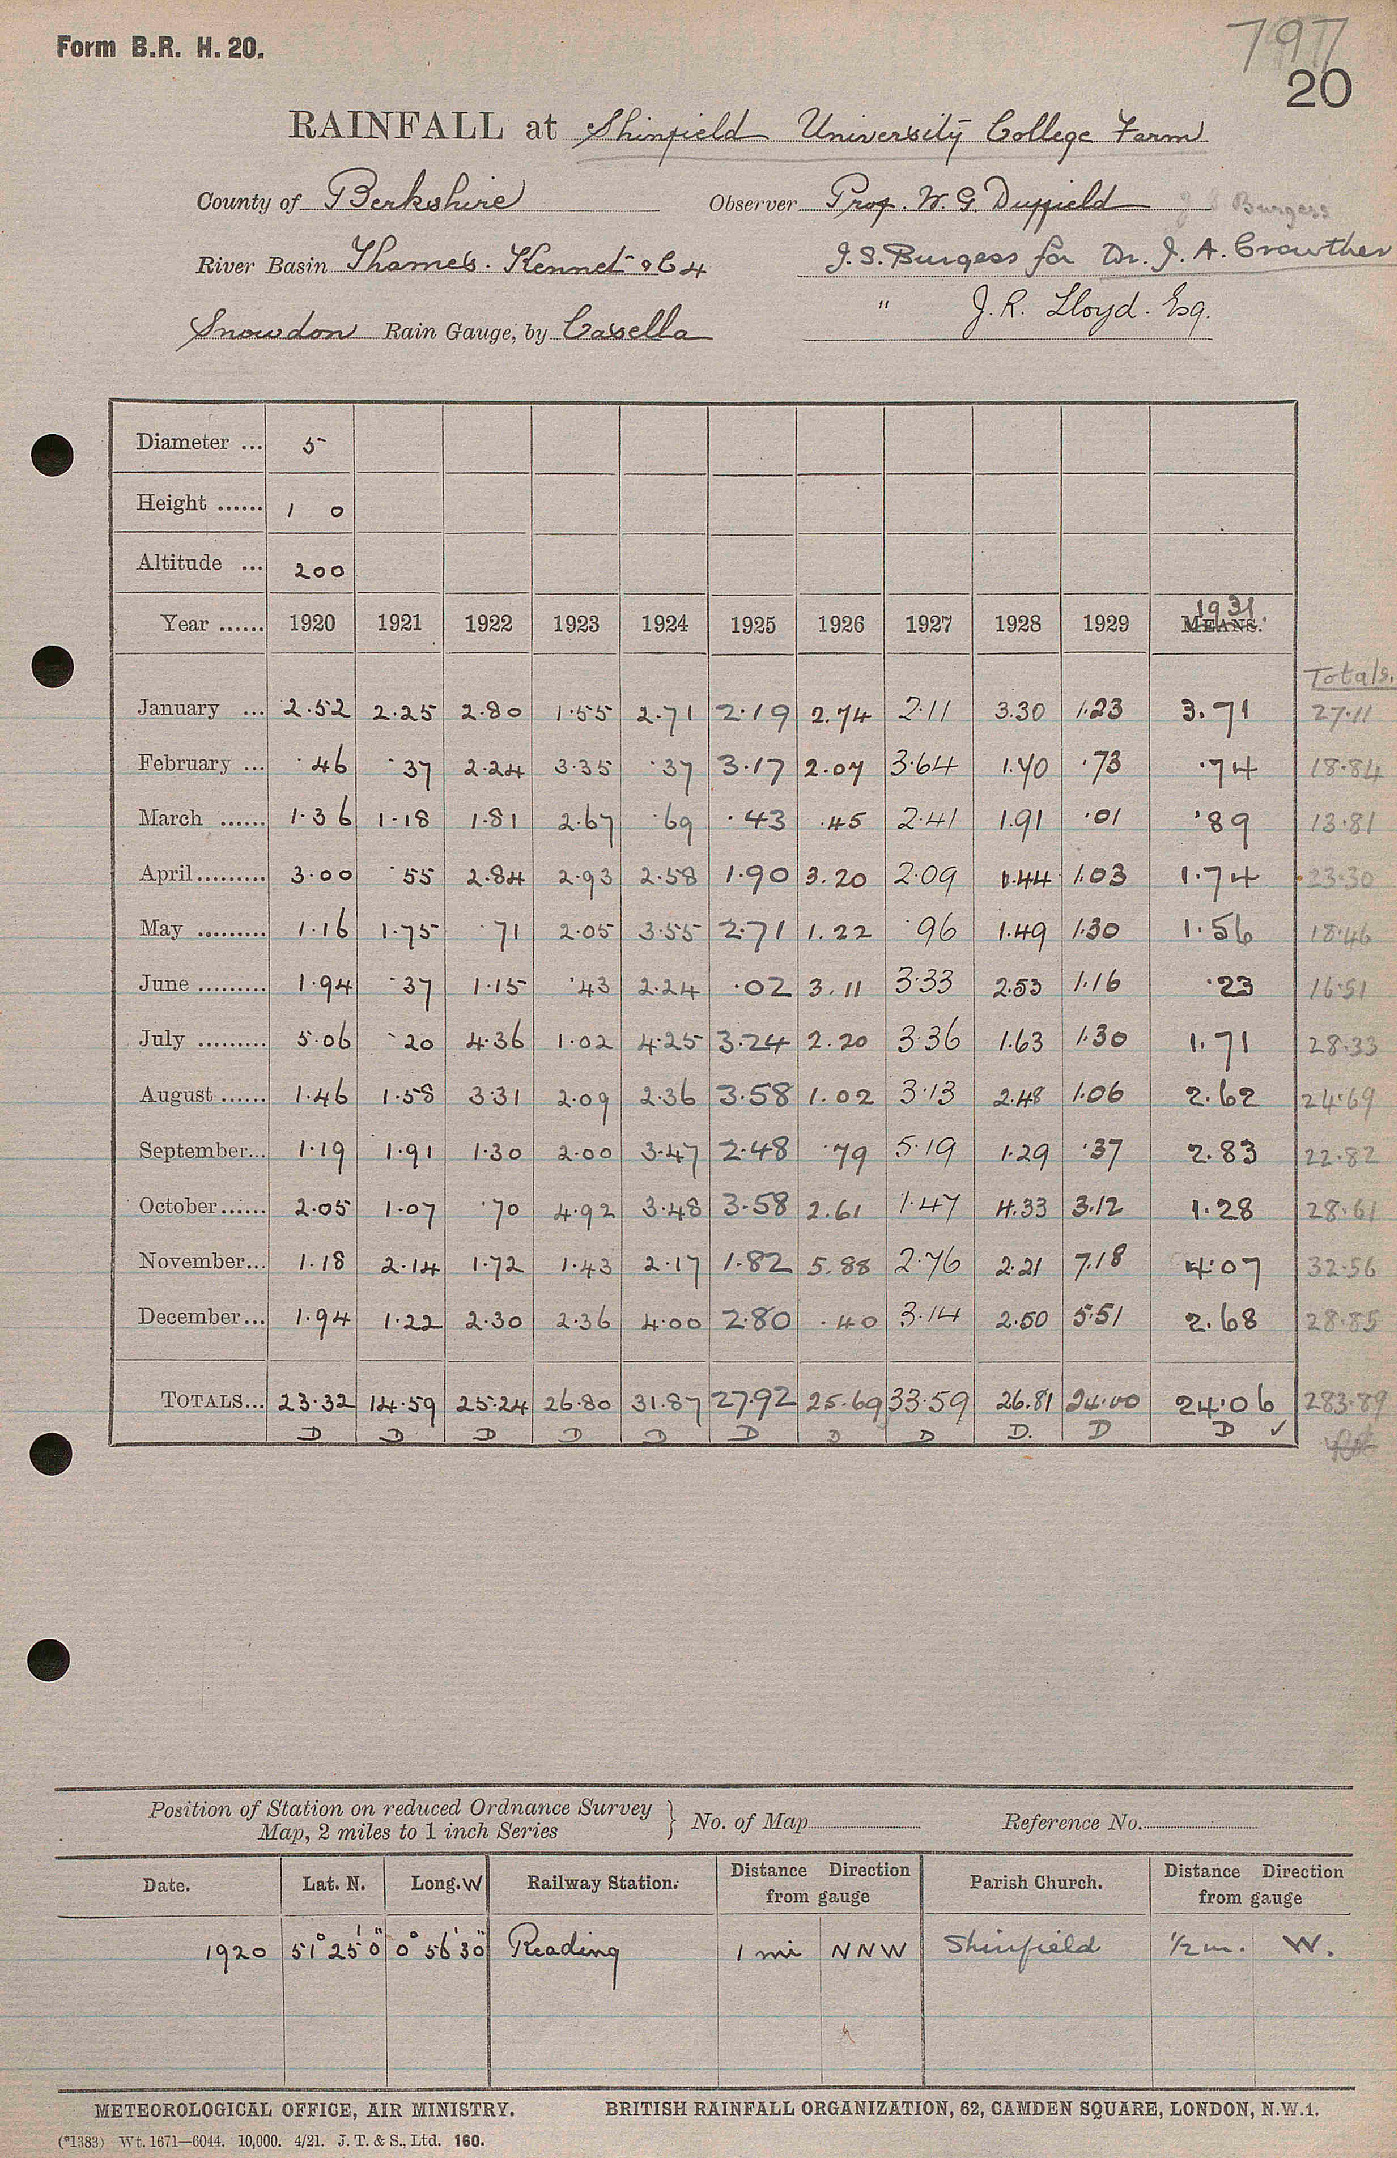 Form B.R. H. 20.
797
20
RAINFALL at Shinfield University College Farm
County of Berkshire Observer Prof. W. G. Duffield J S Burgess
River Basin Thames. Kennet & C4 J. S. Burgess for Dr. J. A. Crowther
Snowdon Rain Gauge, by Casella " J. R. Lloyd. Esq.
Diameter ... 5
Height ...... 1 0
Altitude ... 200
Year ...... 1920 1921 1922 1923 1924 1925 1926 1927 1928 1929 MEANS. 1931
Totals.
January ... 2.52 2.25 2.80 1.55 2.71 2.19 2.74 2.11 3.30 1.23 3.71 27.11
February ... .46 .37 2.24 3.35 .37 3.17 2.07 3.64 1.40 .73 .74 18.84
March ...... 1.36 1.18 1.81 2.67 .69 .43 .45 2.41 1.91 .01 .89 13.81
April ......... 3.00 .55 2.84 2.93 2.58 1.90 3.20 2.09 1.44 1.03 1.74 23.30
May ......... 1.16 1.75 .71 2.05 3.55 2.71 1.22 .96 1.49 1.30 1.56 18.46
June ......... 1.94 .37 1.15 .43 2.24 .02 3.11 3.33 2.53 1.16 .23 16.51
July ......... 5.06 .20 4.36 1.02 4.25 3.24 2.20 3.36 1.63 1.30 1.71 28.33
August ...... 1.46 1.58 3.31 2.09 2.36 3.58 1.02 3.13 2.48 1.06 2.62 24.69
September... 1.19 1.91 1.30 2.00 3.47 2.48 .79 5.19 1.29 .37 2.83 22.82
October ...... 2.05 1.07 .70 4.92 3.48 3.58 2.61 1.47 4.33 3.12 1.28 28.61
November... 1.18 2.14 1.72 1.43 2.17 1.82 5.88 2.76 2.21 7.18 4.07 32.56
December... 1.94 1.22 2.30 2.36 4.00 2.80 .40 3.14 2.50 5.51 2.68 28.85
TOTALS... 23.32 14.59 25.24 26.80 31.87 27.92 25.69 33.59 26.81 24.00 24.06 283.89
D D D D D D D D D. D D ✓
Position of Station on reduced Ordnance Survey
Map, 2 miles to 1 inch Series } No. of Map Reference No.
Date. Lat. N. Long. W Railway Station. Distance Direction from gauge Parish Church. Distance Direction from gauge
1920 51° 25' 0" 0° 56' 30" Reading 1 mi NNW Shinfield ½ m. W.
METEOROLOGICAL OFFICE, AIR MINISTRY. BRITISH RAINFALL ORGANIZATION, 62, CAMDEN SQUARE, LONDON, N.W.1.
(*1383) Wt. 1671—6044. 10,000. 4/21. J. T. & S., Ltd. 160.